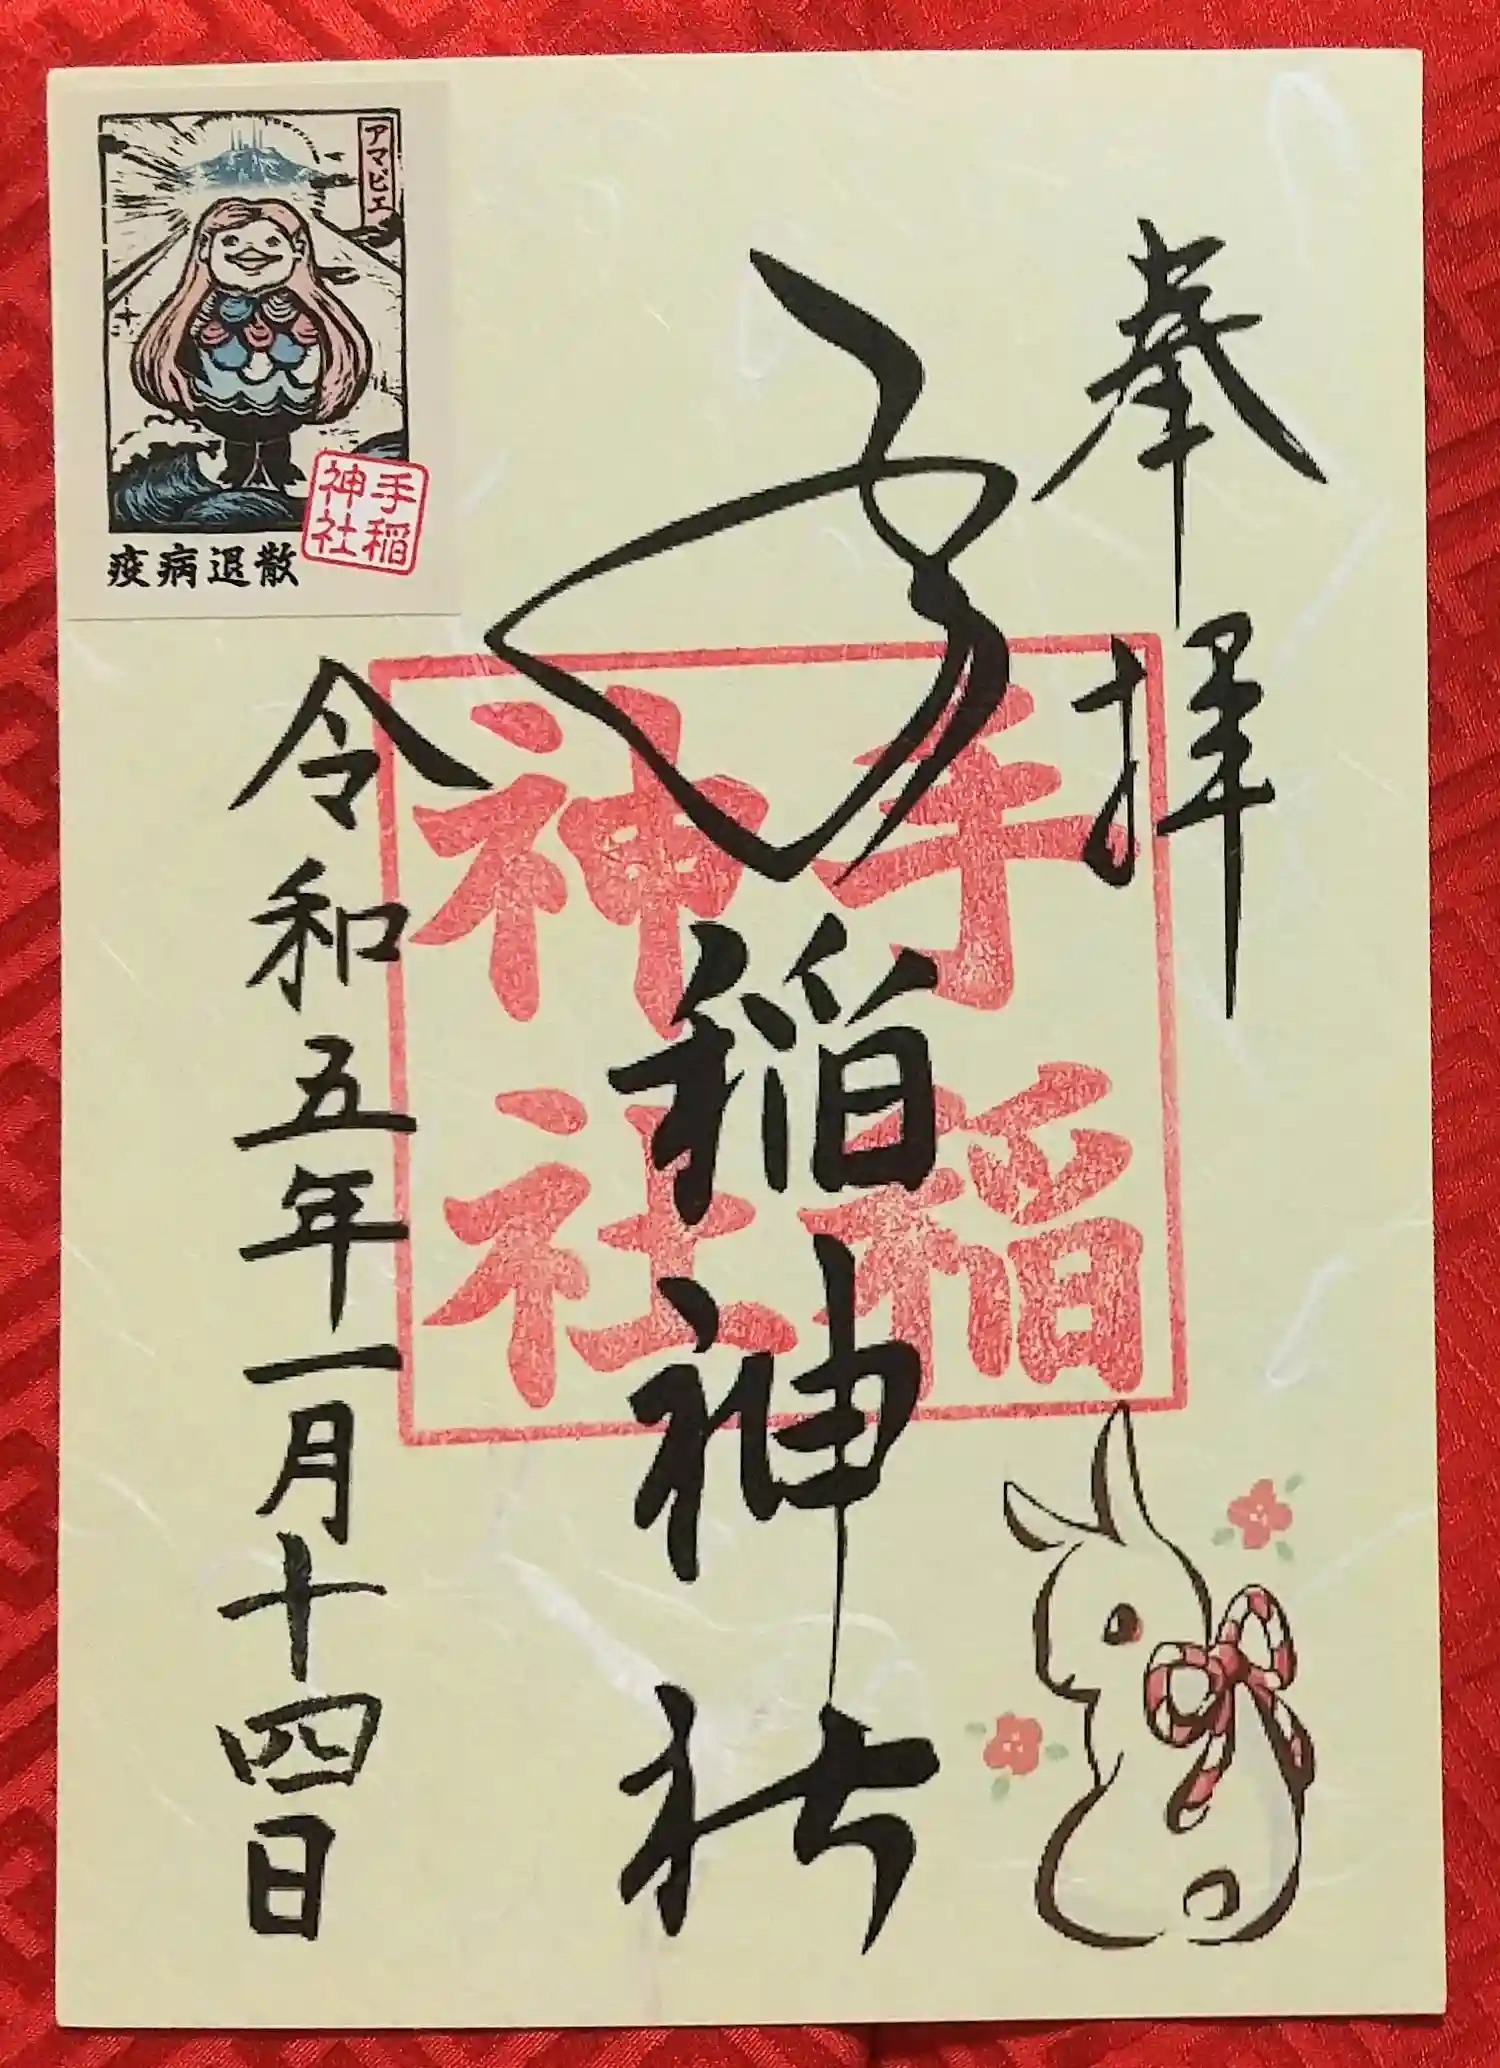 奉拝
手稲神社
手稲
神社
令和五年一月十四日
アマビエ
手稲
神社
疫病退散